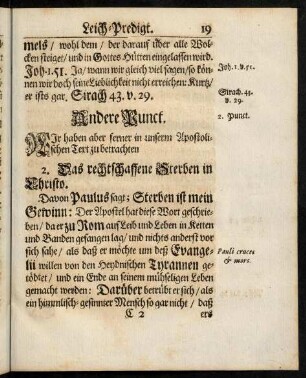 Leich-Predigt. 19
mels / wohl dem / der darauf über alle Wol-
cken steiget / und in Gottes Hütten eingelassen wird.
Joh. 1. 51. Ja / wann wir gleich viel sagen / so kön-
nen wir doch seine Lieblichkeit nicht erreichen: Kurtz /
er ists gar, Sirach 43. v. 29.
Joh. 1. v. 51.
Sirach. 43.
v. 29.
Andere Punct.
2. Punct.
WIr haben aber ferner in unserm Apostoli-
schen Text zu betrachten
2. Das rechtschaffene Sterben in
Christo.
Davon Paulus sagt; Sterben ist mein
Gewinn: Der Apostel hat diese Wort geschrie-
ben / da er zu Rom auf Leib und Leben in Ketten
und Banden gefangen lag / und nichts anderst vor
sich sahe / als daß er möchte um deß Evange-
lii willen von den Heydnischen Tyrannen ge-
tödtet / und ein Ende an seinem mühseligen Leben
gemacht werden: Darüber betrübt er sich / als
ein himmlisch-gesinnter Mensch so gar nicht / daß
Pauli cruces
& mors.
C 2 ers